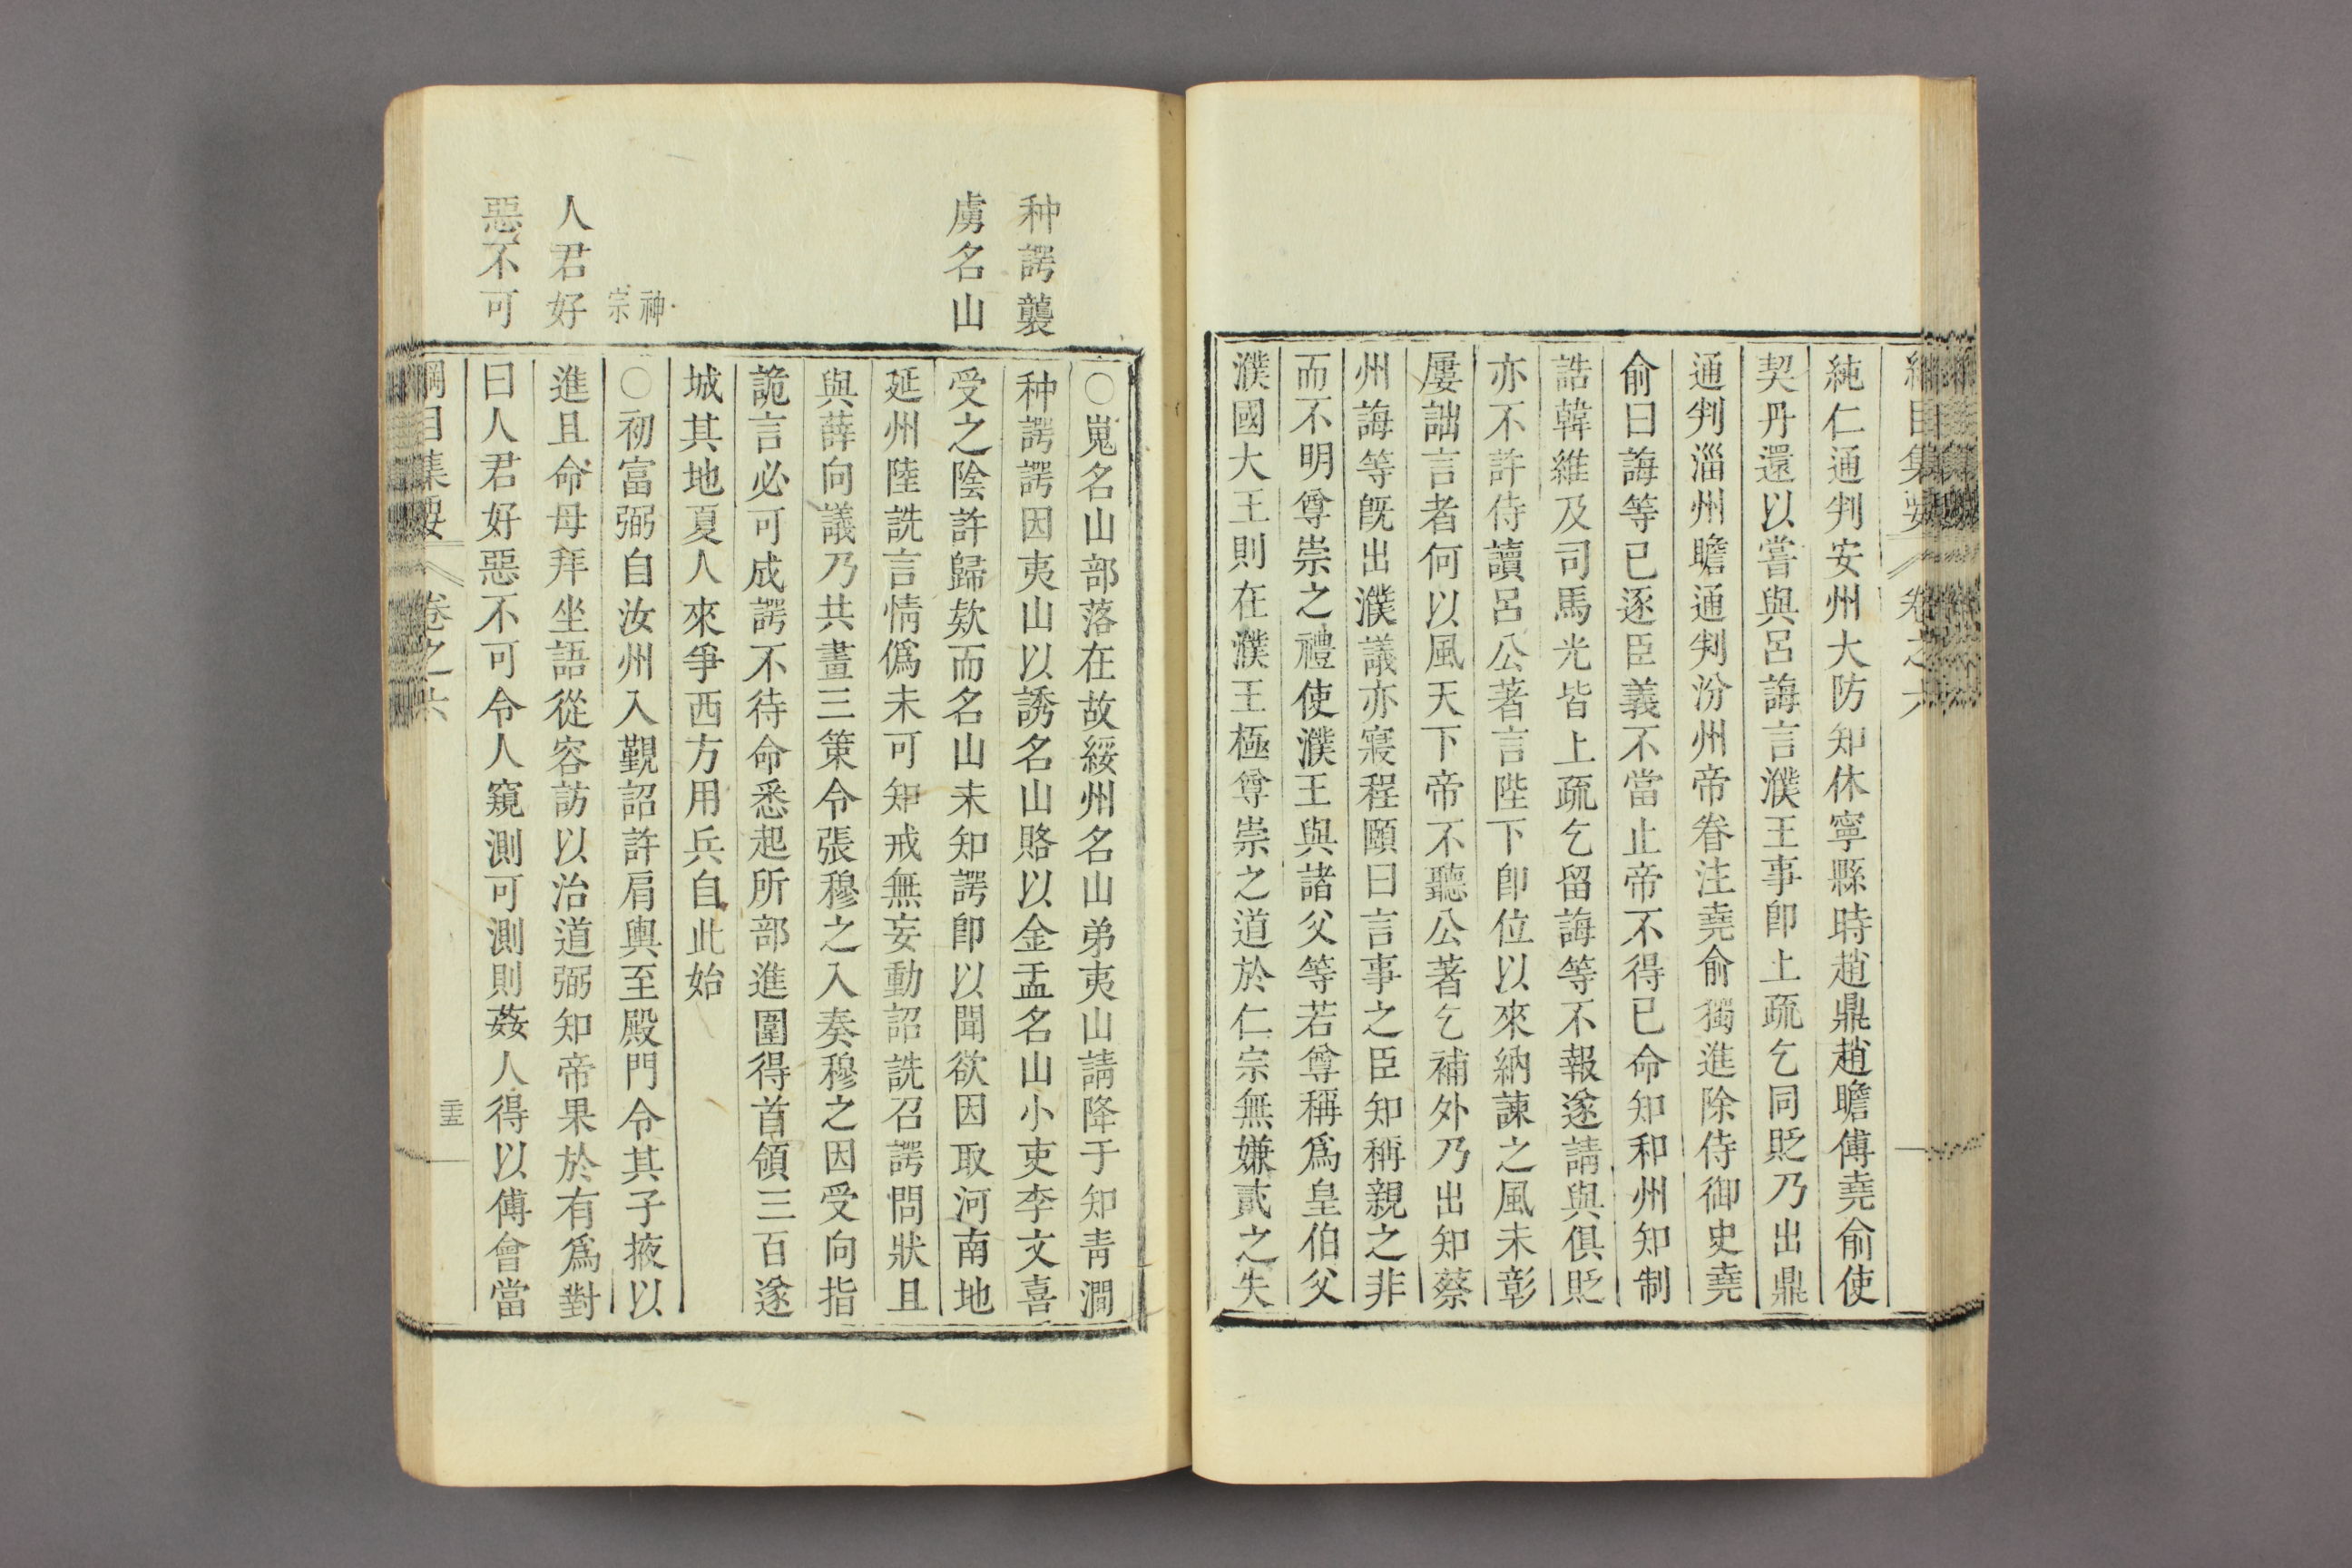 綱目集要 卷之六
純仁通判安州大防知休寧縣時趙鼎趙瞻傅堯俞使
契丹還以嘗與呂誨言濮王事卽上疏乞同貶乃出鼎
通判淄州瞻通判汾州帝眷注堯俞獨進除侍御史堯
俞曰誨等已逐臣義不當止帝不得已命知和州知制
誥韓維及司馬光皆上疏乞留誨等不報遂請與俱貶
亦不許侍讀呂公著言陛下卽位以來納諫之風未彰
屢詘言者何以風天下帝不聽公著乞補外乃出知蔡
州誨等旣出濮議亦寢程頤曰言事之臣知稱親之非
而不明尊崇之禮使濮王與諸父等若尊稱爲皇伯父
濮國大王則在濮王極尊崇之道於仁宗無嫌貳之失
种諤襲
虜名山
○嵬名山部落在故綏州名山弟夷山請降于知靑澗
种諤諤因夷山以誘名山賂以金盂名山小吏李文喜
受之陰許歸欵而名山未知諤卽以聞欲因取河南地
延州陸詵言情僞未可知戒無妄動詔詵召諤問狀且
與薛向議乃共畫三策令張穆之入奏穆之因受向指
詭言必可成諤不待命悉起所部進圍得首領三百遂
城其地夏人來爭西方用兵自此始
神宗
○初富弼自汝州入覲詔許肩輿至殿門令其子掖以
人君好
惡不可
進且命毋拜坐語從容訪以治道弼知帝果於有爲對
曰人君好惡不可令人窺測可測則姦人得以傅會當
綱目集要 卷之六 二十五